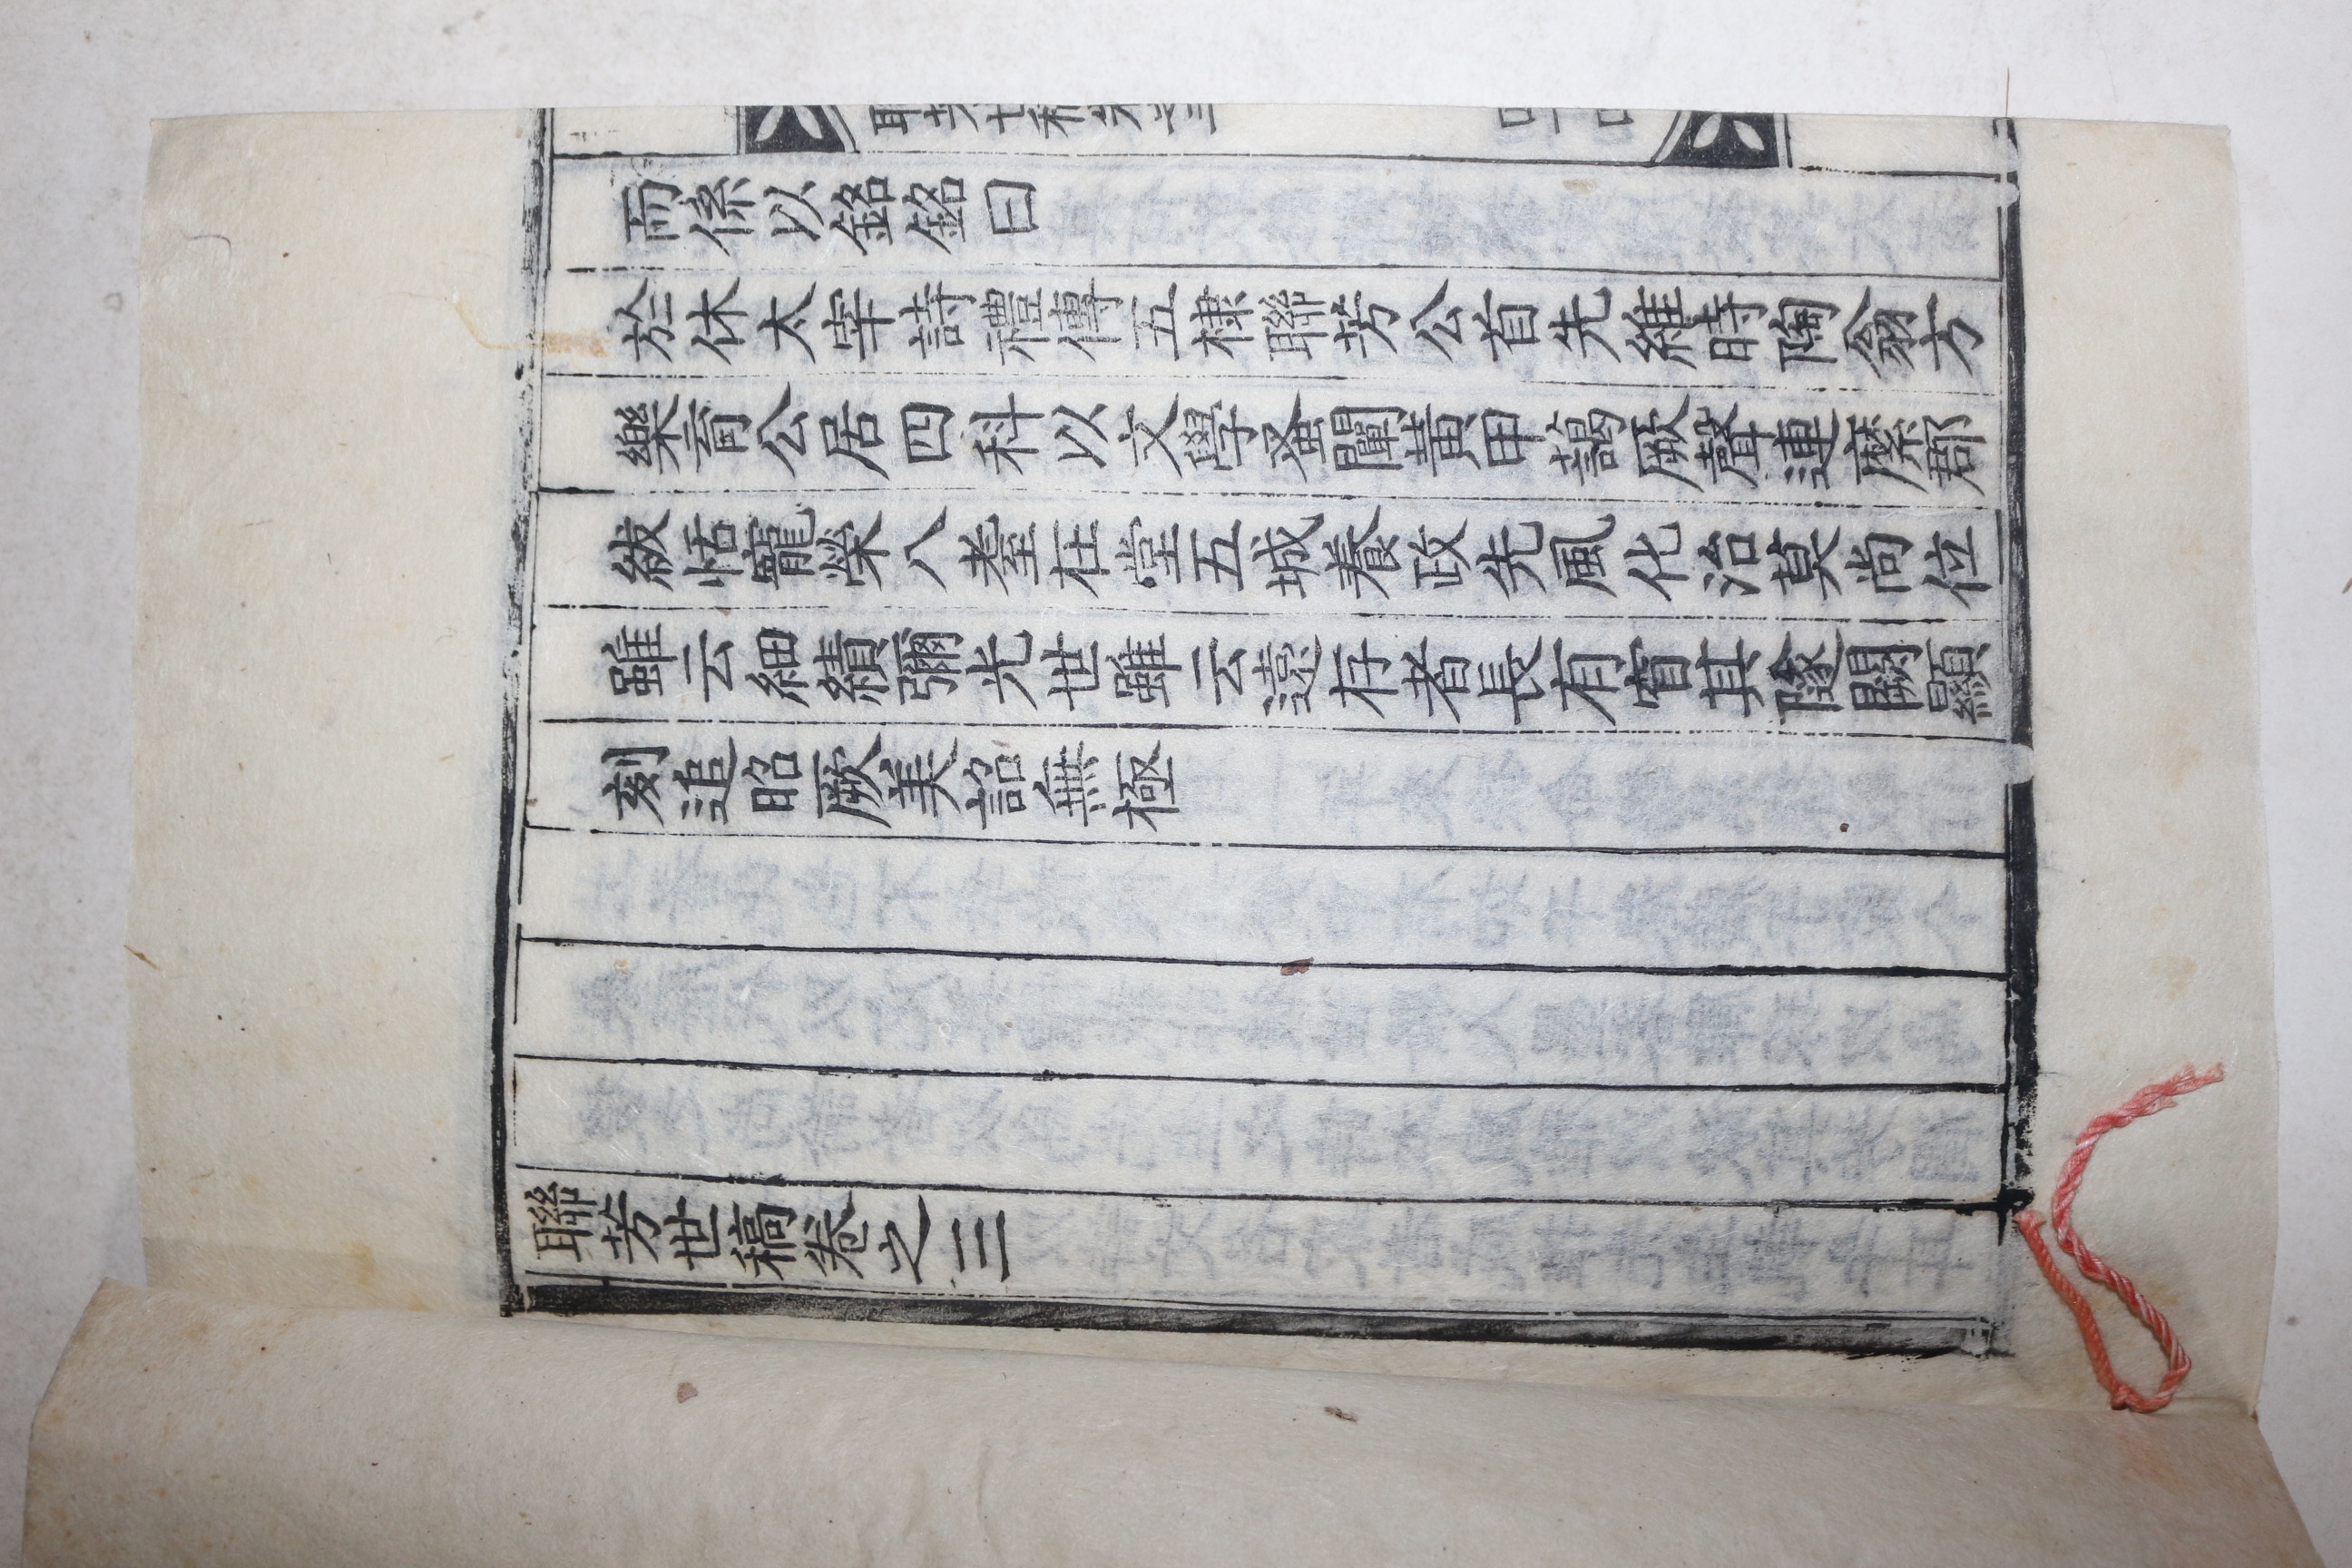 聯芳世稿卷之三
而係以銘銘曰
於休太宰詩禮傳五棣聯芳公首先維時陶翁方
樂育公居四科以文學蚤闡黃甲藹厥聲連縻郡
紱恬寵榮八耋在堂五城養政先風化治莫尚位
雖云細績彌光世雖云遠存者長有窅其隧闕顯
刻追昭厥美詔無極
聯芳世稿卷之三